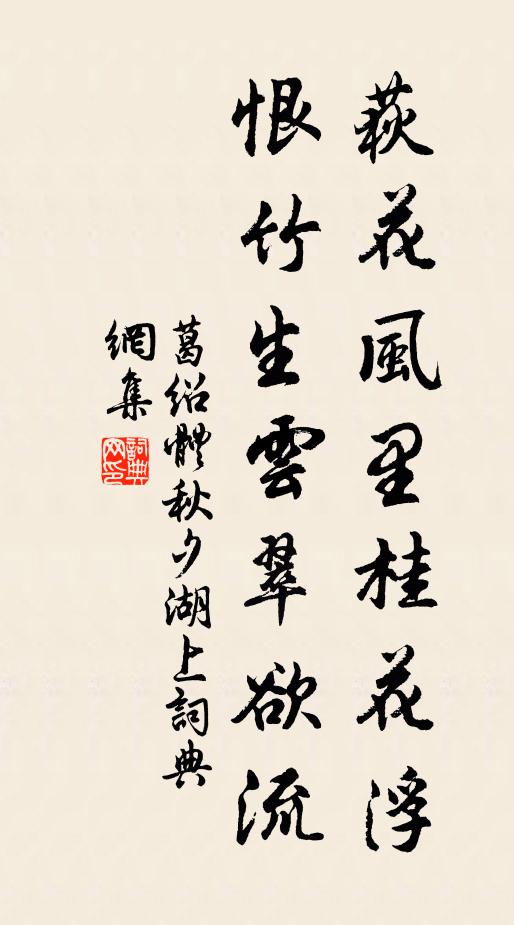 萩花風里桂花浮
恨竹生雲翠欲流
葛紹體秋夕湖上詞典
網集
詞典網印